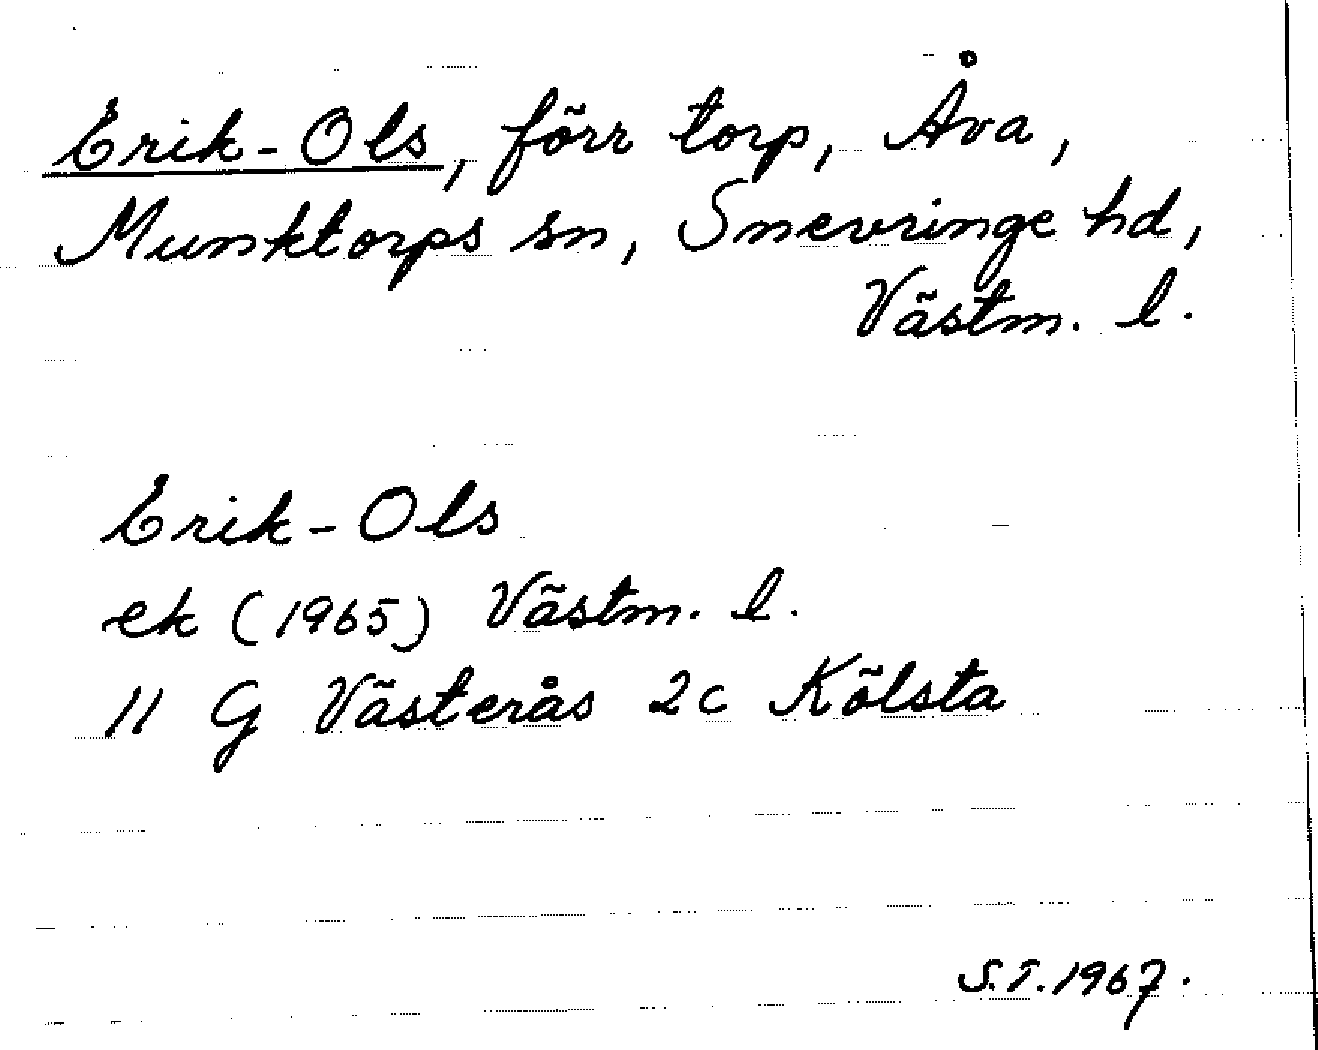 Erik-Ols, förr torp, Åva,
Munktorps sn, Snevringe hd,
Västm. l.
Erik-Ols
ek (1965) Västm. l.
11 G Västerås 2c Kölsta
S.T. 1967.